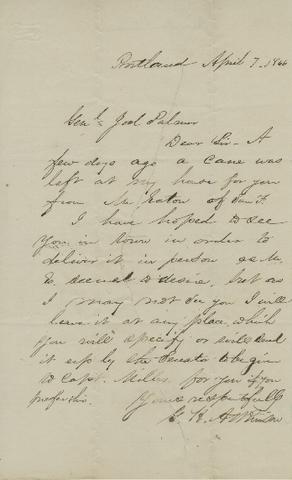 Portland April 7, 1866
Genl. Joel Palmer
Dear Sir - A
few days ago a cane was
left at my house for you
from Mr. Eaton of San F.
I have hoped to see
you in town in order to
deliver it in person as Mr.
E. seemed to desire, but as
I may not see you I will
leave it at any place which
you will specify or will send
it up by the Senator to begin
to Capt. Miller for you if you
prefer this.
Yours respectfully
G. H. Atkinson